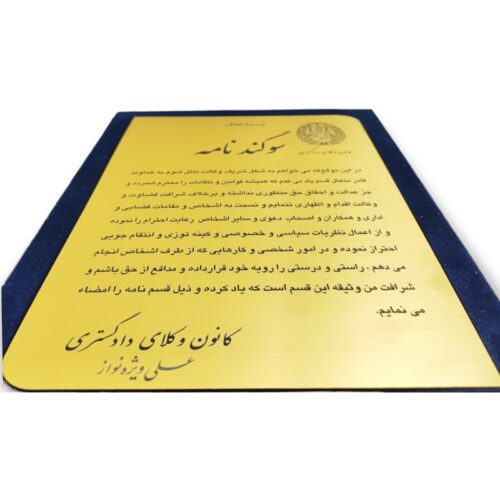 بسمه تعالی
کانون وکلای دادگستری
سوگند نامه
در این موقع که می خواهم به شغل شریف وکالت نائل شوم به خداوند
قادر متعال قسم یاد می کنم که همیشه قوانین و نظامات را محترم شمرده و
جز عدالت و احقاق حق منظوری نداشته و برخلاف شرافت قضاوت و
وکالت اقدام و اظهاری ننمایم و نسبت به اشخاص و مقامات قضایی و
اداری و همکاران و اصحاب دعوی و سایر اشخاص رعایت احترام را نموده
و از اعمال نظریات سیاسی و خصوصی و کینه توزی و انتقام جویی
احتراز نموده و در امور شخصی و کارهایی که از طرف اشخاص انجام
می دهم . راستی و درستی را رویه خود قرارداده و مدافع از حق باشم و
شرافت من وثیقه این قسم است که یاد کرده و ذیل قسم نامه را امضاء
می نمایم.
کانون وکلای دادگستری
علی ویژه نواز